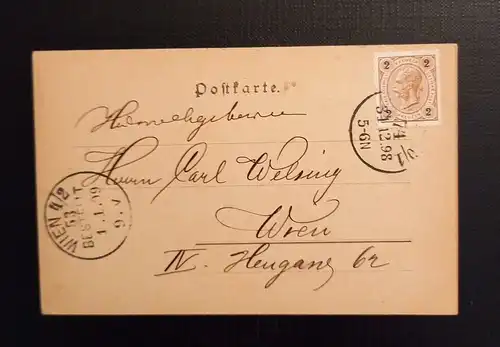 Postkarte.
2 2
2 2
31.12.98
5-6N
Hochwohlgeboren
Herrn Carl Welsing
Wien
IV. Heugasse 62
WIEN 4/2
53
BESTELLT
1.1.99
9.V